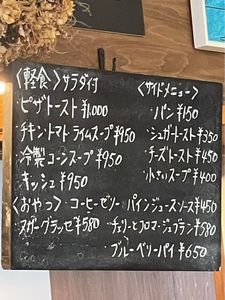 〈軽食〉サラダ付
・ピザトースト ¥1,000
・チキントマトライムスープ ¥950
・冷製コーンスープ ¥950
・キッシュ ¥950
〈サイドメニュー〉
・パン ¥150
・シュガートースト ¥350
・チーズトースト ¥450
・小さいスープ ¥400
〈おやつ〉・コーヒーゼリー パインジュースソース ¥450
・ヌガーグラッセ ¥580
・チェリーとフロマージュブラン ¥580
・ブルーベリーパイ ¥650